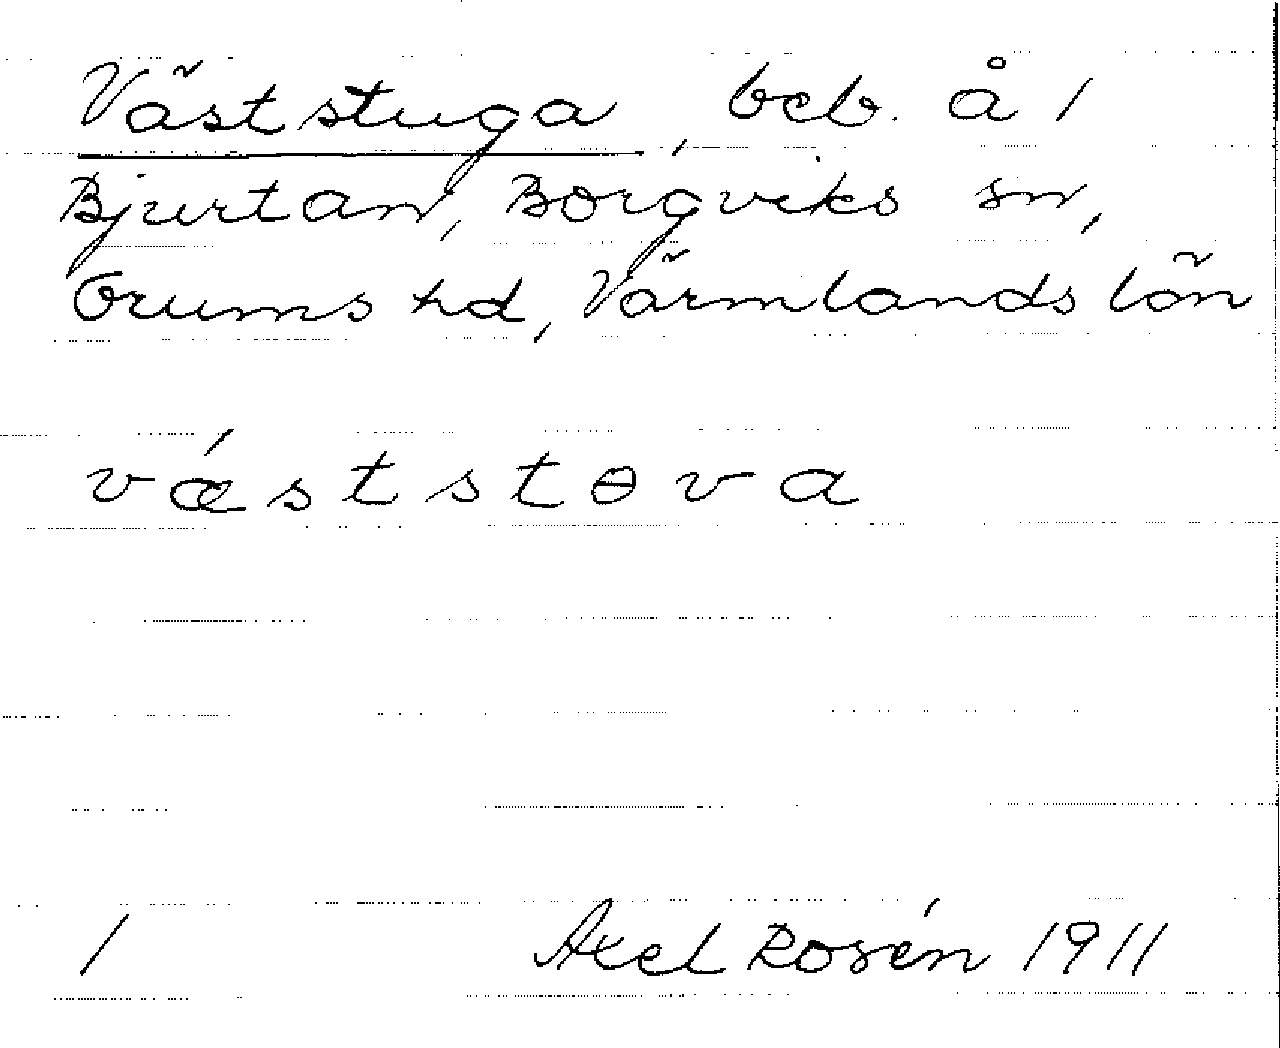 Väststuga, beb. å 1
Bjurtan, Borgviks sn,
Grums hd, Värmlands län
vǽststɵva
1 Axel Rosén 1911